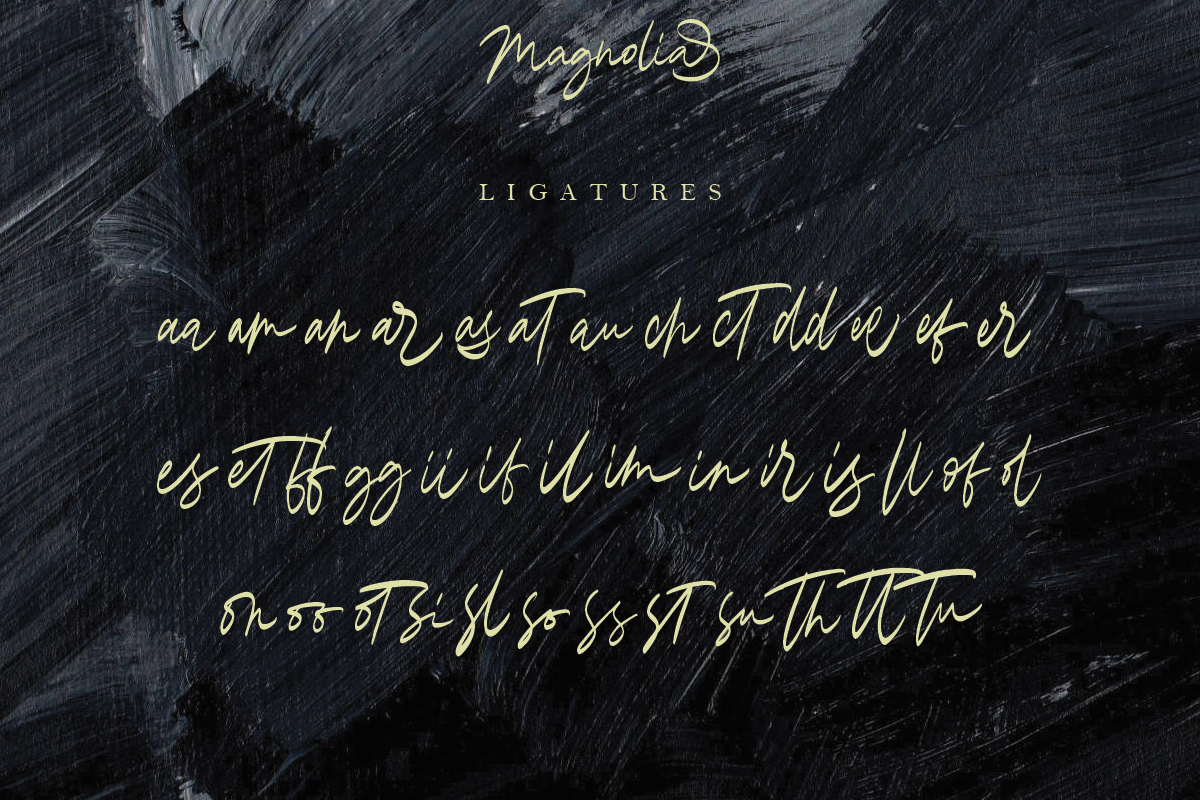 Magnolias
LIGATURES
aa am an ar as at au ch ct dd ee ef er
es et ff gg ii if il im in ir is ll of ol
on oo ot si sl so ss st su th tt tu